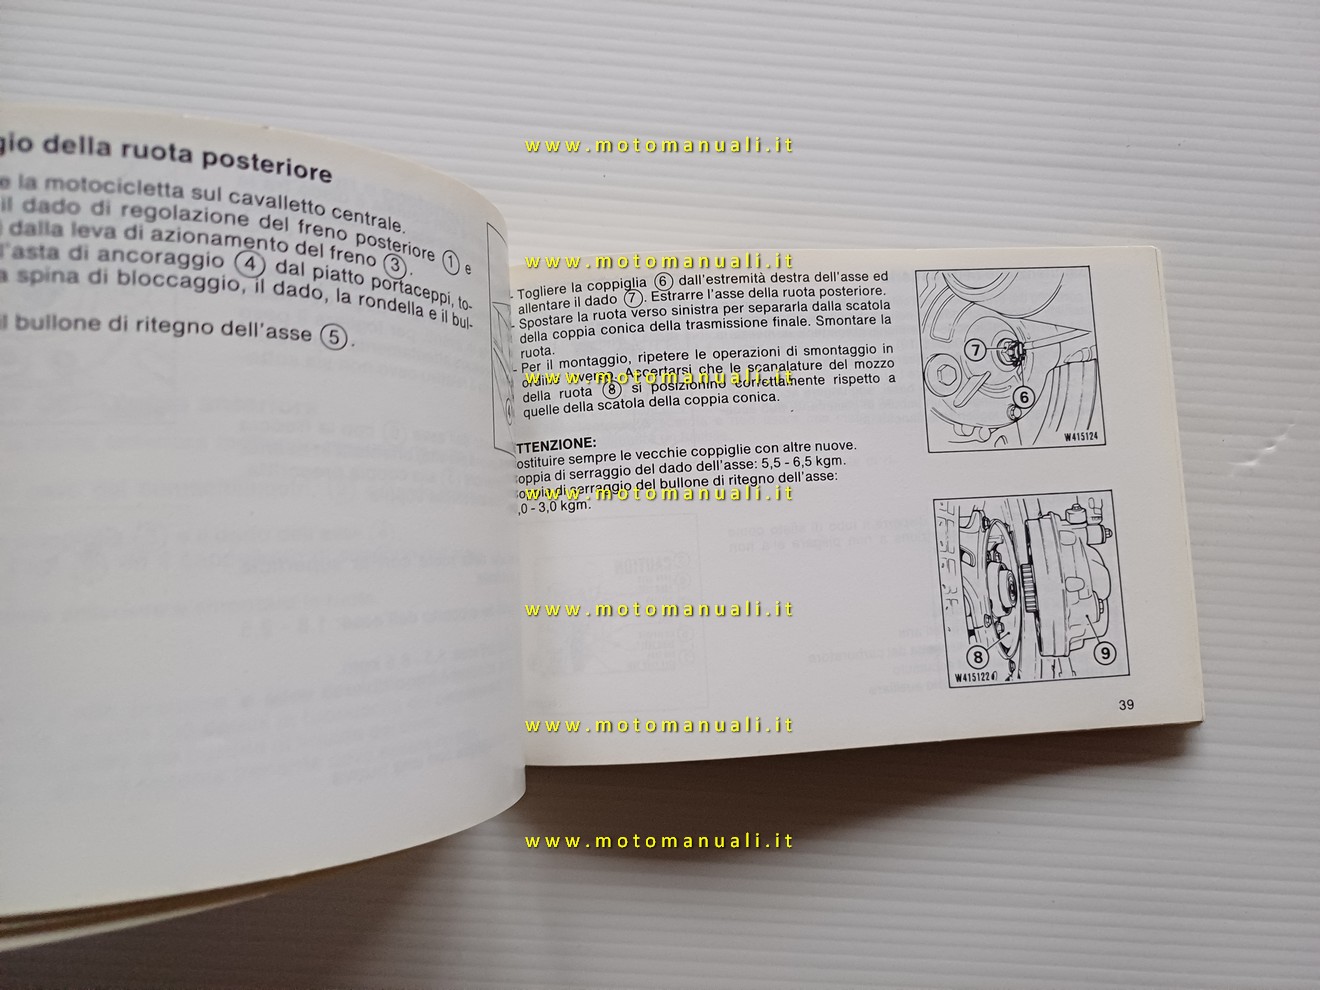 gio della ruota posteriore
e la motocicletta sul cavalletto centrale.
il dado di regolazione del freno posteriore ① e
dalla leva di azionamento del freno ③.
l'asta di ancoraggio ④ dal piatto portaceppi, to-
a spina di bloccaggio, il dado, la rondella e il bul-
il bullone di ritegno dell'asse ⑤.
- Togliere la coppiglia ⑥ dall'estremità destra dell'asse ed
allentare il dado ⑦. Estrarre l'asse della ruota posteriore.
- Spostare la ruota verso sinistra per separarla dalla scatola
della coppia conica della trasmissione finale. Smontare la
ruota.
- Per il montaggio, ripetere le operazioni di smontaggio in
ordine inverso. Accertarsi che le scanalature del mozzo
della ruota ⑧ si posizionino correttamente rispetto a
quelle della scatola della coppia conica.
TTENZIONE:
ostituire sempre le vecchie coppiglie con altre nuove.
oppia di serraggio del dado dell'asse: 5,5 - 6,5 kgm.
oppia di serraggio del bullone di ritegno dell'asse:
,0 - 3,0 kgm.
⑦
⑥
W415124
⑧
⑨
W415122
39
www.motomanuali.it
www.motomanuali.it
www.motomanuali.it
www.motomanuali.it
www.motomanuali.it
www.motomanuali.it
www.motomanuali.it